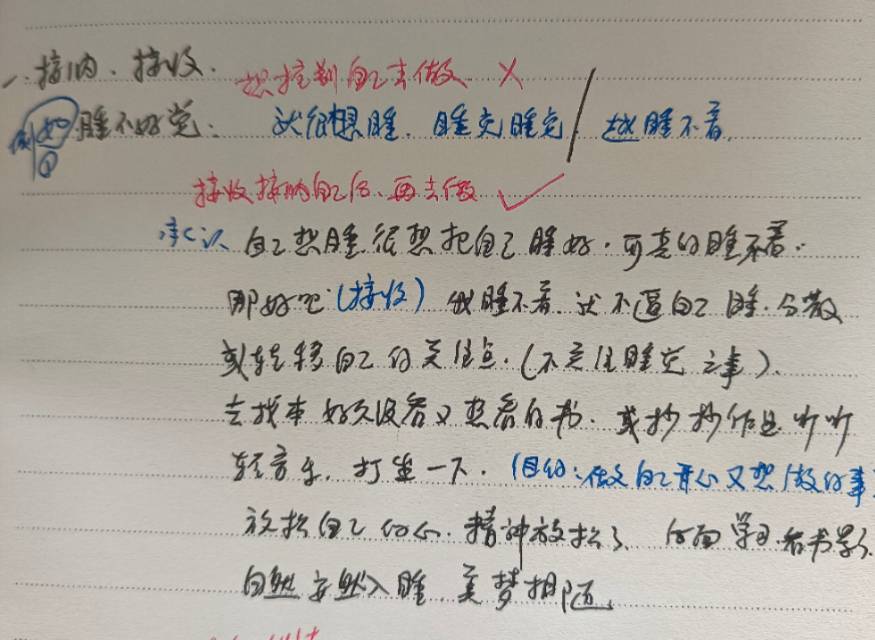 一.接纳、接收. 想控制自己去做 ×
例如① 睡不好觉: 我很想睡. 睡觉睡觉/越睡不着.
接收接纳自己后、再去做 ✓
承认 自己想睡很想把自己睡好.可真的睡不着.
那好吧(接收) 我睡不着.我不逼自己睡.分散
或转移自己的关注点.(不关注睡觉之事).
去找本好久没看又想看的书.或抄抄作业听听
轻音乐.打坐一下.(目的:做自己开心又想做的事
放松自己的心.精神放松了、后面学习.看书累了.
自然安然入睡.美梦相随.